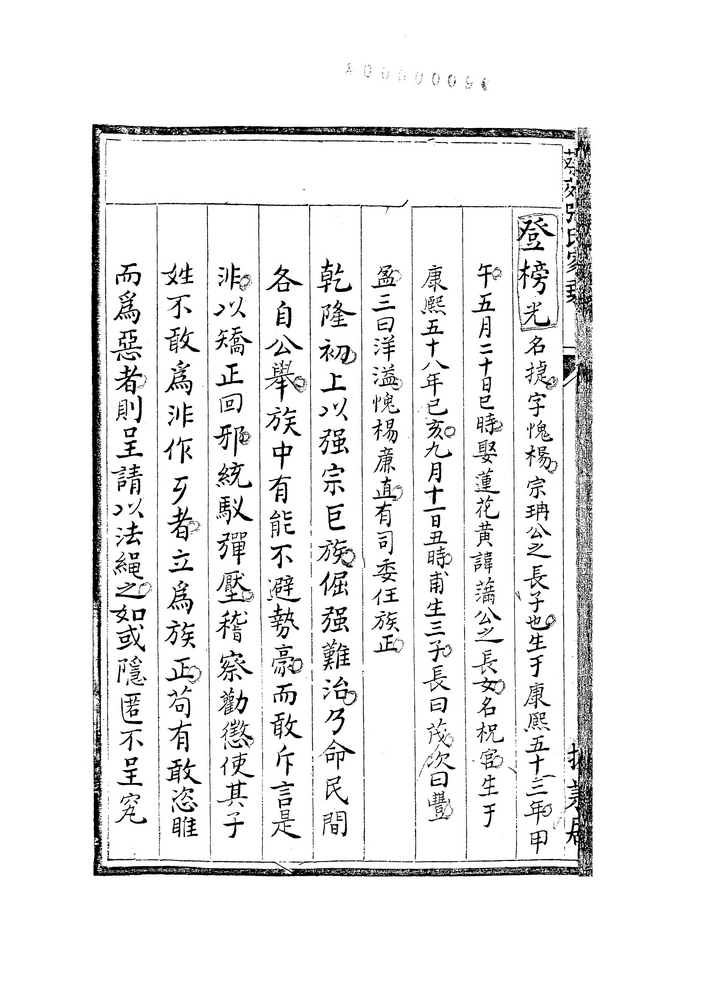 登榜光 名捷字愧楊宗珃公之長子也生于康熙五十三年甲
午五月二十日巳時娶蓮花黃諱藩公之長女名柷官生于
康熙五十八年己亥九月十一日丑時甫生三子長曰茂次曰豐
盈三曰洋溢愧楊廉直有司委任族正
乾隆初上以强宗巨族倔强難治乃命民間
各自公舉族中有能不避勢豪而敢斥言是
非以矯正回邪統馭彈壓稽察勸懲使其子
姓不敢爲非作歹者立爲族正苟有敢恣睢
而爲惡者則呈請以法繩之如或隱匿不呈究